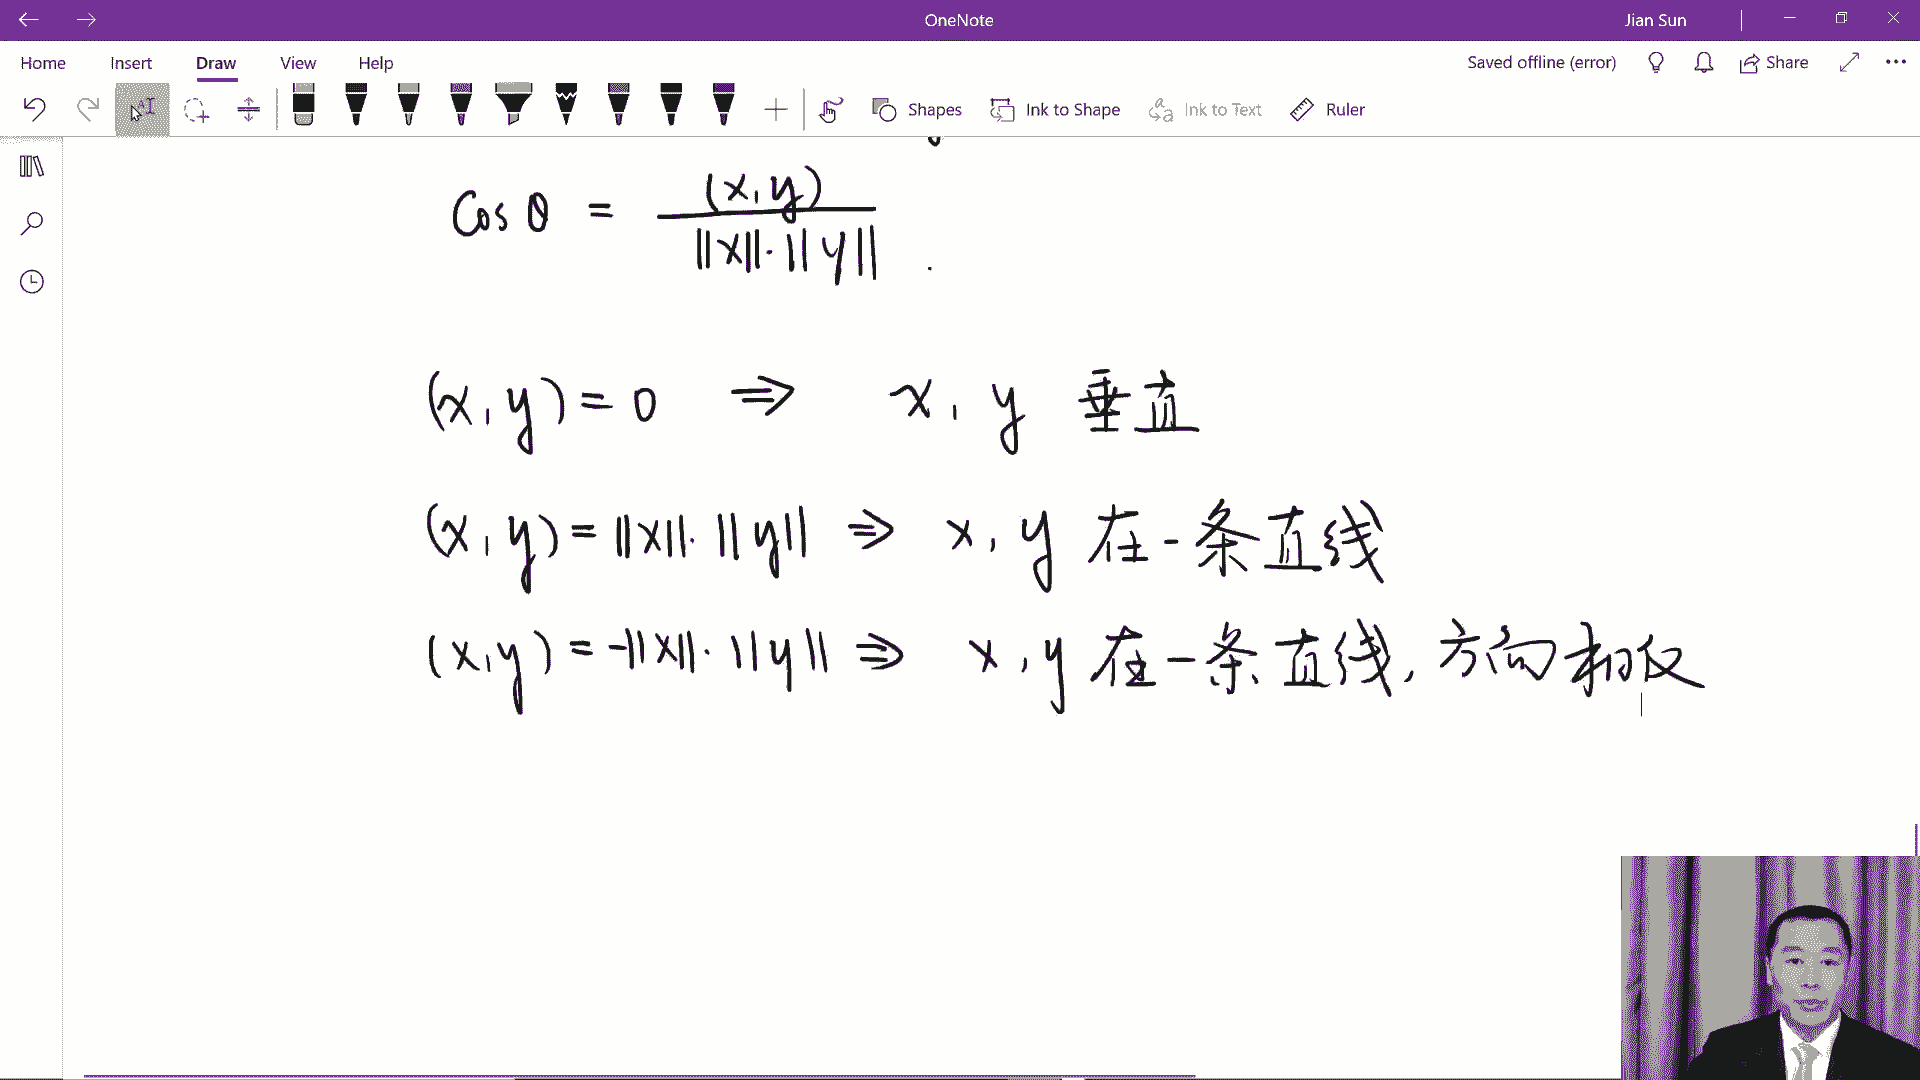 OneNote
Jian Sun
Home Insert Draw View Help
Saved offline (error) Share
Shapes Ink to Shape Ink to Text Ruler
Cos θ = (x,y) / ||x||·||y|| .
(x,y) = 0 ⇒ x, y 垂直
(x,y) = ||x||·||y|| ⇒ x, y 在一条直线
(x,y) = -||x||·||y|| ⇒ x, y 在一条直线, 方向相反